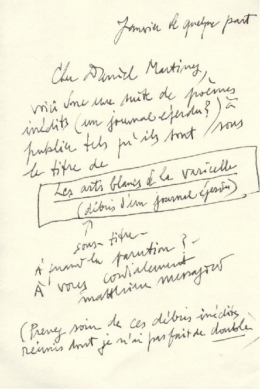 Janvier de quelque part
Cher Daniel Martinez,
voici donc une suite de poèmes
inédits (un journal éperdu?) à
publier tels qu'ils sont / sous
le titre de
Les arts blancs de la varicelle
(débris d'un journal éperdu)
↑
sous-titre -
À quand la parution ? -
À vous cordialement
matthieu messagier
(Prenez soin de ces débris inédits
réunis dont je n'ai pas fait de double)